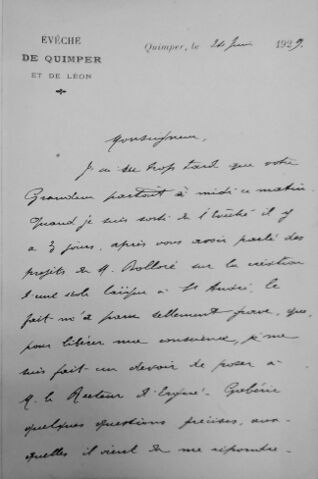 EVÊCHÉ
DE QUIMPER
ET DE LÉON
Quimper, le 24 Juin 1929.
Monseigneur,
J'ai su trop tard que votre
Grandeur partait à midi ce matin.
Quand je suis sorti de l'Evêché il y
a 3 jours, après vous avoir parlé des
projets de M. Bolloré sur la création
d'une école laïque à St André, le
fait m'a paru tellement grave, que,
pour libérer ma conscience, je me
suis fait un devoir de poser à
M. le Recteur d'Ergué-Gabéric
quelques questions précises, aux-
quelles il vient de me répondre.